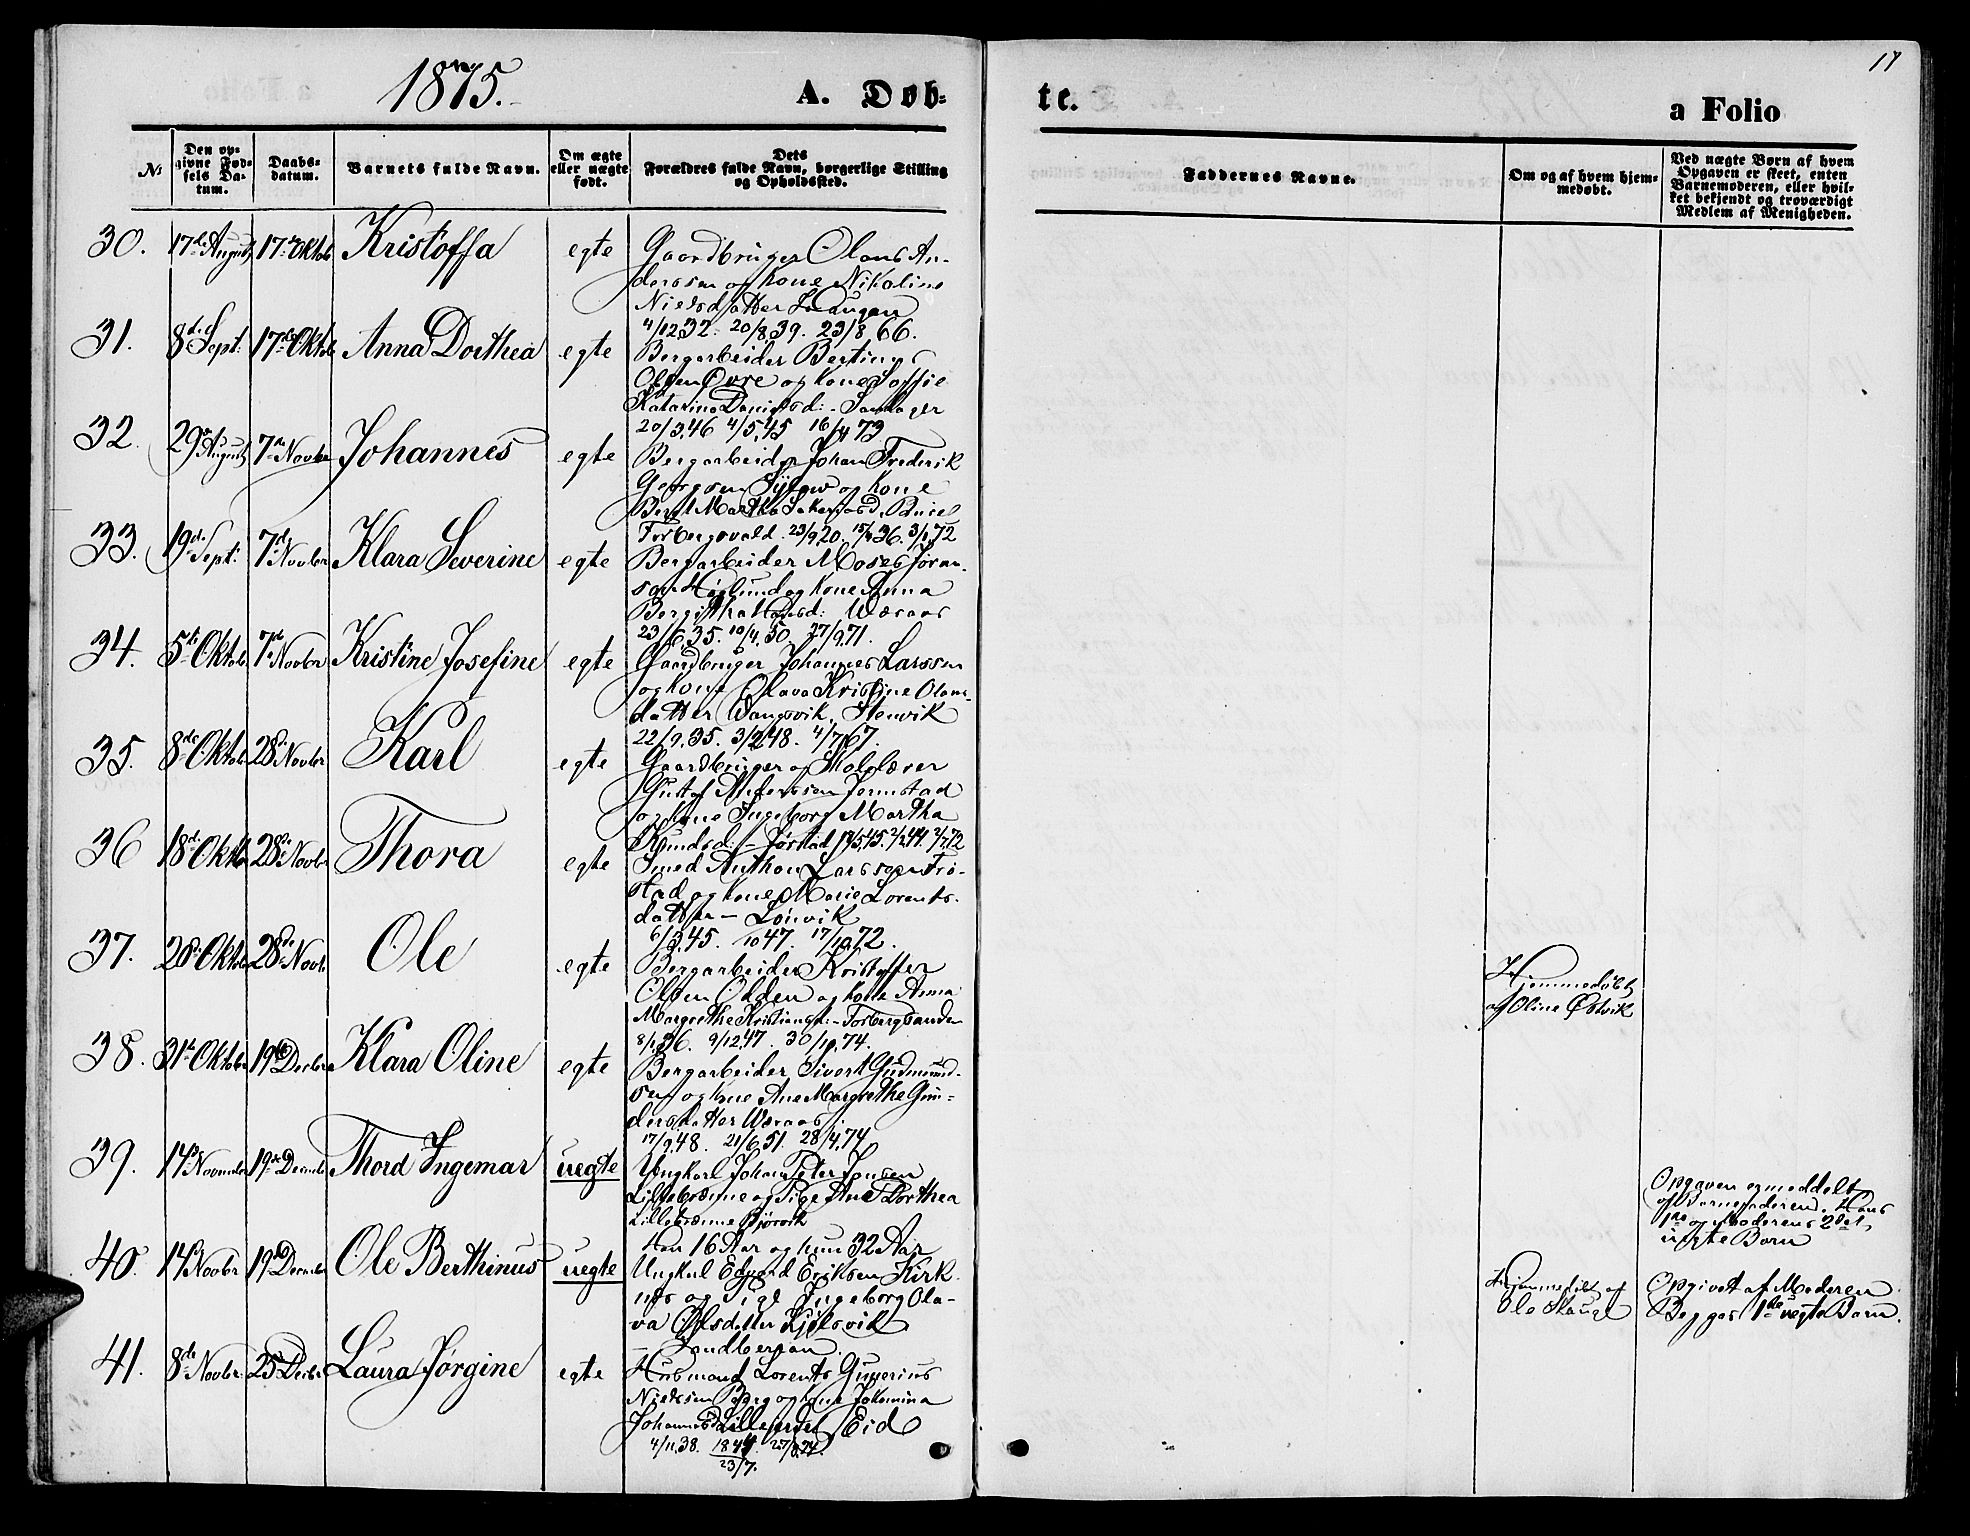 1875.
A. Døb-
te.
a Folio
17
№
Den op-
givne Fød-
sels Da-
tum.
Daabs-
datum.
Barnets fulde Navn.
Om ægte
eller uægte
født.
Dets
Forældres fulde Navn, borgerlige Stilling
og Opholdssted.
Faddernes Navne.
Om og af hvem hjem-
medøbt.
Ved uægte Børn af hvem
Opgaven er skeet, enten
Barnemoderen, eller hvil-
ket bekjendt og troværdigt
Medlem af Menigheden.
30. 17de August 17de Oktob Kristoffa egte
Gaardbruger Olaus An-
derssen og kone Nikoline
Nielsdatter Haugan
4/12 32. 20/8 39. 23/8 66.
31. 8de Sept: 17de Oktob Anna Dorthea egte
Bergarbeider Bertinus
Olsen Øvre og kone Soffie
Katarina Danielsd: - Sandager
20/3 46 4/5 45 16/4 73
32. 29de August 7de Novbr Johannes egte
Bergarbeider Johan Frederik
Georgsen og kone
Forbergsvald. 23/9 20. 36. 3/1 72
33. 19de Sept: 7de Novbr Klara Severine egte
Bergarbeider Moses Jøran-
sen Høglund og kone Anna
Bergitha Weraas
23/6 35. 10/4 50. 27/9 71.
34. 5te Oktob 7de Novbr Kristine Josefine egte
Gaardbruger Johannes Larssen
og kone Olava Kristine Olaus-
datter Wangsvik, Stenvik
22/9 35. 3/2 48. 4/7 67.
35. 8de Oktob 28de Novbr Karl egte
Gaardbruger og Skolelærer
Gustaf Andersson Jermstad
og kone Ingeborg Martha
Knudsd: - Jørstad
36 18de Oktb 28de Novbr Thora egte
Smed Anthon Larssen Frø-
stad og kone Marie Lorents-
datter - Lønvik
6/3 45. 10 47. 17/10 72.
37. 28de Oktob 28de Nov. Ole egte
Bergarbeider Kristoffer
Olsen Olden og kone Anna
Margrethe Kristiansd: - Forbergsanden
8/1 36. 9/12 47. 30/10 74.
Hjemmedøbt
af Oline Østvik
38. 31te Oktobr 19de Decbr Klara Oline egte
Bergarbeider Sivert Gudmund-
sen og kone Ane Margrethe Gun-
dersdatter Weraas
17/9 48. 21/6 51. 28/4 74.
39. 14de Novembr 19de Decembr Thord Ingemar uegte
Ungkarl Johan Peter Jonsen
Lillebrænne og Pige Ane Dorthea
Lillebrænne Bjørvik
Han 16 Aar og hun 32 Aar
Opgaven meddelt
af Barnefaderen. Hans
1ste og Moderens 2det
uegte Barn
40. 14de Novbr 19de Decembr Ole Berthinus uegte
Ungkarl Edvard Eriksen Kirk-
nes og Pige Ingeborg Ola-
va Olsdatter Kjelsvik
- Sandberган.
Hjemmedøbt af
Ole Hauge
Opgivet af Moderen
Begges 1ste uegte Barn.
41. 8de Novbr. 25de Decbr Laura Jørgine egte
Husmand Lorents Gunerius
Nielssen Berg og kone Jokomina
Johannesd. Eid
4/11 38. 1844 27/8 74.
23/7.